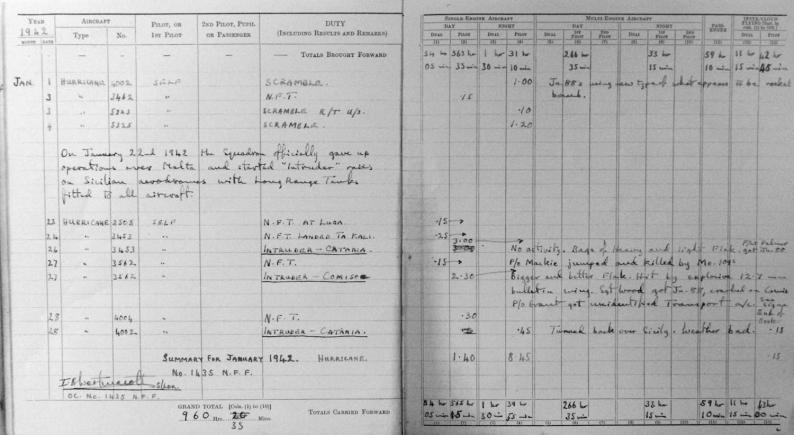 YEAR 1942 AIRCRAFT PILOT, OR 1ST PILOT 2ND PILOT, PUPIL OR PASSENGER DUTY (INCLUDING RESULTS AND REMARKS)
MONTH DATE Type No.
— — — — TOTALS BROUGHT FORWARD
JAN 1 HURRICANE 4002 SELF SCRAMBLE.
3 " 3462 " N.F.T.
3 " " SCRAMBLE R/T U/S.
4 " " SCRAMBLE.
On January 22nd 1942 the Squadron officially gave up
operations over Malta and started "Intruder" raids
on Sicilian aerodromes with Long Range Tanks
fitted to all aircraft.
23 HURRICANE 2503 SELF N.F.T. AT LUQA.
24 " 3453 " N.F.T. LANDED TA KALI.
26 " 3453 " INTRUDER - CATANIA.
27 " 3562 " N.F.T.
27 " 3562 " INTRUDER - COMISO
28 " 4004 N.F.T.
28 " 4002 INTRUDER - CATANIA.
SUMMARY FOR JANUARY 1942. HURRICANE.
No. 1435 N.F.F.
OC. No. 1435 N.F.F.
GRAND TOTAL [Cols. (1) to (10)]
960 Hrs. 35 Mins.
TOTALS CARRIED FORWARD
SINGLE-ENGINE AIRCRAFT MULTI-ENGINE AIRCRAFT PASSENGER
DAY NIGHT DAY NIGHT
DUAL PILOT DUAL PILOT DUAL 1ST PILOT 2ND PILOT DUAL 1ST PILOT 2ND PILOT DUAL PILOT
(1) (2) (3) (4) (5) (6) (7) (8) (9) (10) (11) (12) (13)
54 hr 563 hr 1 hr 31 hr 266 hr 33 hr 59 hr 11 hr 42 hr
05 min 35 min 30 min 10 min 35 min 15 min 10 min 15 min 45 min
1.00 Ju.88's using new type of what appears to be rocket
bomb.
.15
.10
1.20
.15
.25
3.00 No activity. Bags of Heavy and light Flak. got Ju.88
.15 P/o Mackie jumped and killed by Me.109s
2.30 Bigger and better Flak. Hit by explosive 12.7 mm
bullet in wing. Sgt Wood got Ju-88, crashed on Comiso
P/o Grant got unidentified Transport a/c. See Signal End of Book
.30
.45 Turned back over Sicily. Weather bad. .15
1.40 8.45 .15
54 hr 565 hr 1 hr 39 hr 266 hr 33 hr 59 hr 11 hr
05 min 15 min 30 min 55 min 35 min 15 min 10 min 15 min 00 min